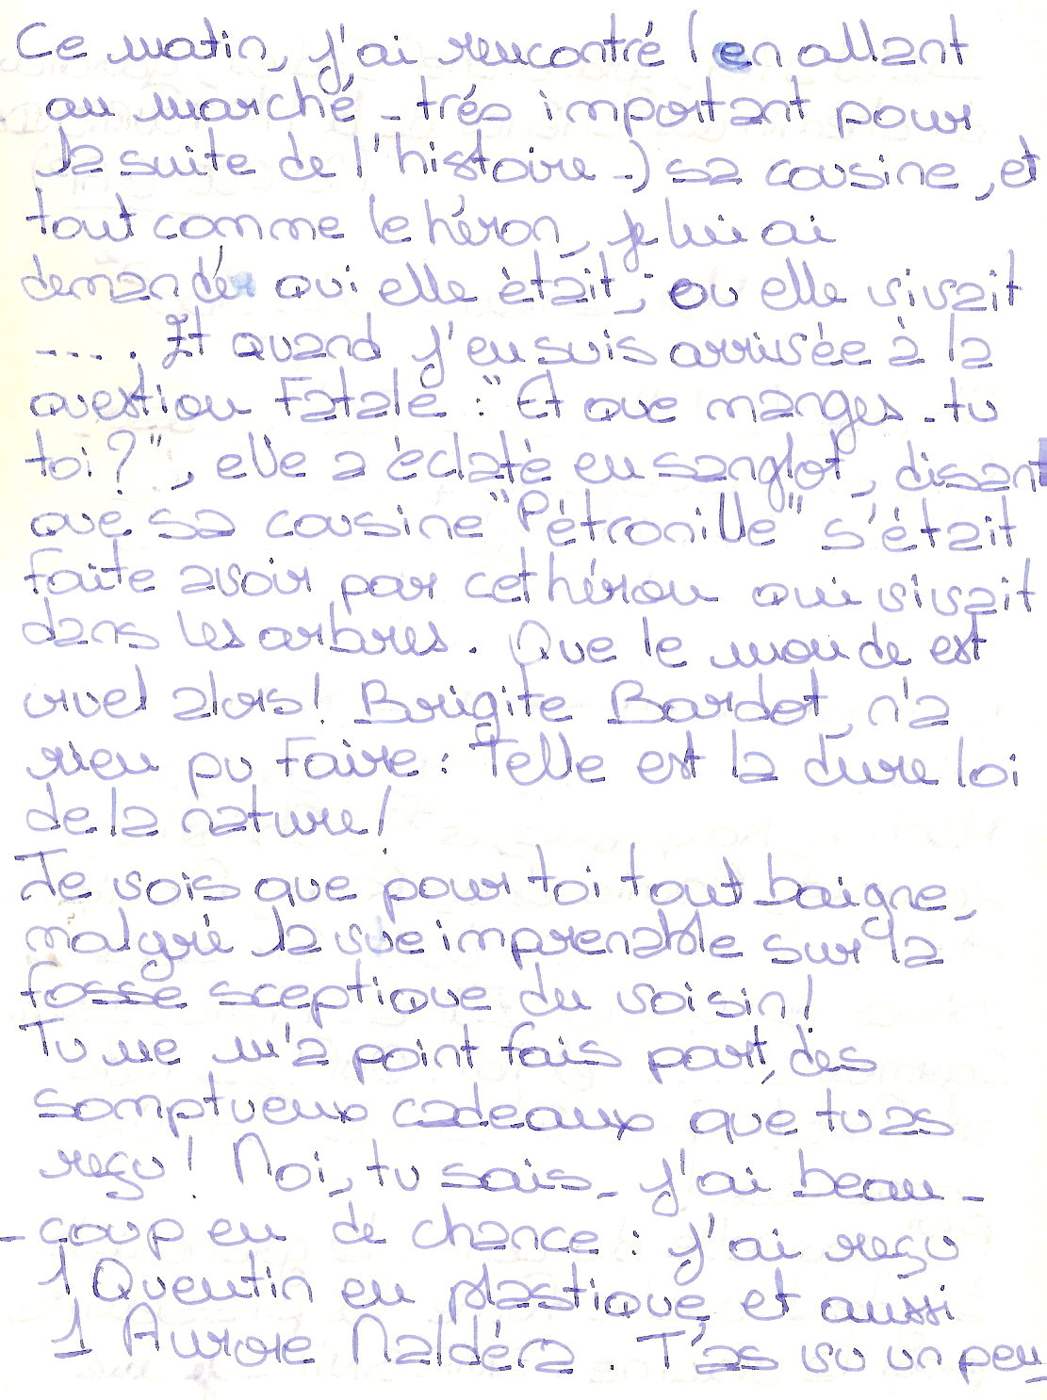 Ce matin, j'ai rencontré (en allant
au marché - trés important pour
la suite de l'histoire -) sa cousine, et
tout comme le héron, je lui ai
demandé qui elle était, ou elle vivait
.... Et quand j'en suis arrivée à la
question Fatale : "Et que manges-tu
toi ?", elle a éclaté en sanglot, disant
que sa cousine "Pétronille" s'était
faite avoir par cet héron qui vivait
dans les arbres. Que le monde est
cruel alors ! Brigite Bardot, n'a
rien pu Faire : Telle est la dure loi
de la nature !
Je vois que pour toi tout baigne,
malgré la vue imprenable sur la
fosse sceptique du voisin !
Tu ne m'a point fais part, des
somptueux cadeaux que tu as
reçu ! Moi, tu sais, j'ai beau-
-coup eu de chance : j'ai reçu
1 Quentin en plastique et aussi
1 Aurore Maldéra. T'as vu un peu